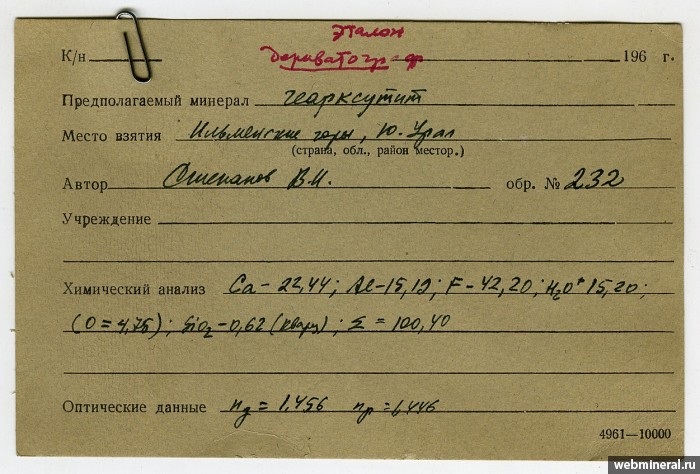 Эталон
К/н дериватогр-ф 196 г.
Предполагаемый минерал геарксутит
Место взятия Ильменские горы, Ю. Урал
(страна, обл., район местор.)
Автор Степанов В.И. обр. № 232
Учреждение
Химический анализ Ca - 22,44; Al - 15,19; F - 42,20; H₂O⁺ 15,20;
(O = 4,75); SiO₂ - 0,62 (кварц); Σ = 100,40
Оптические данные ng = 1,456 np = 1,446
4961—10000
webmineral.ru